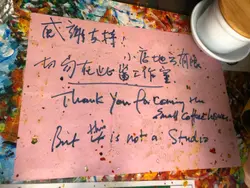 感謝支持,
小店地方有限
切勿在此當工作室
Thank You for coming the
Small Coffee House.
But this is not a Studio